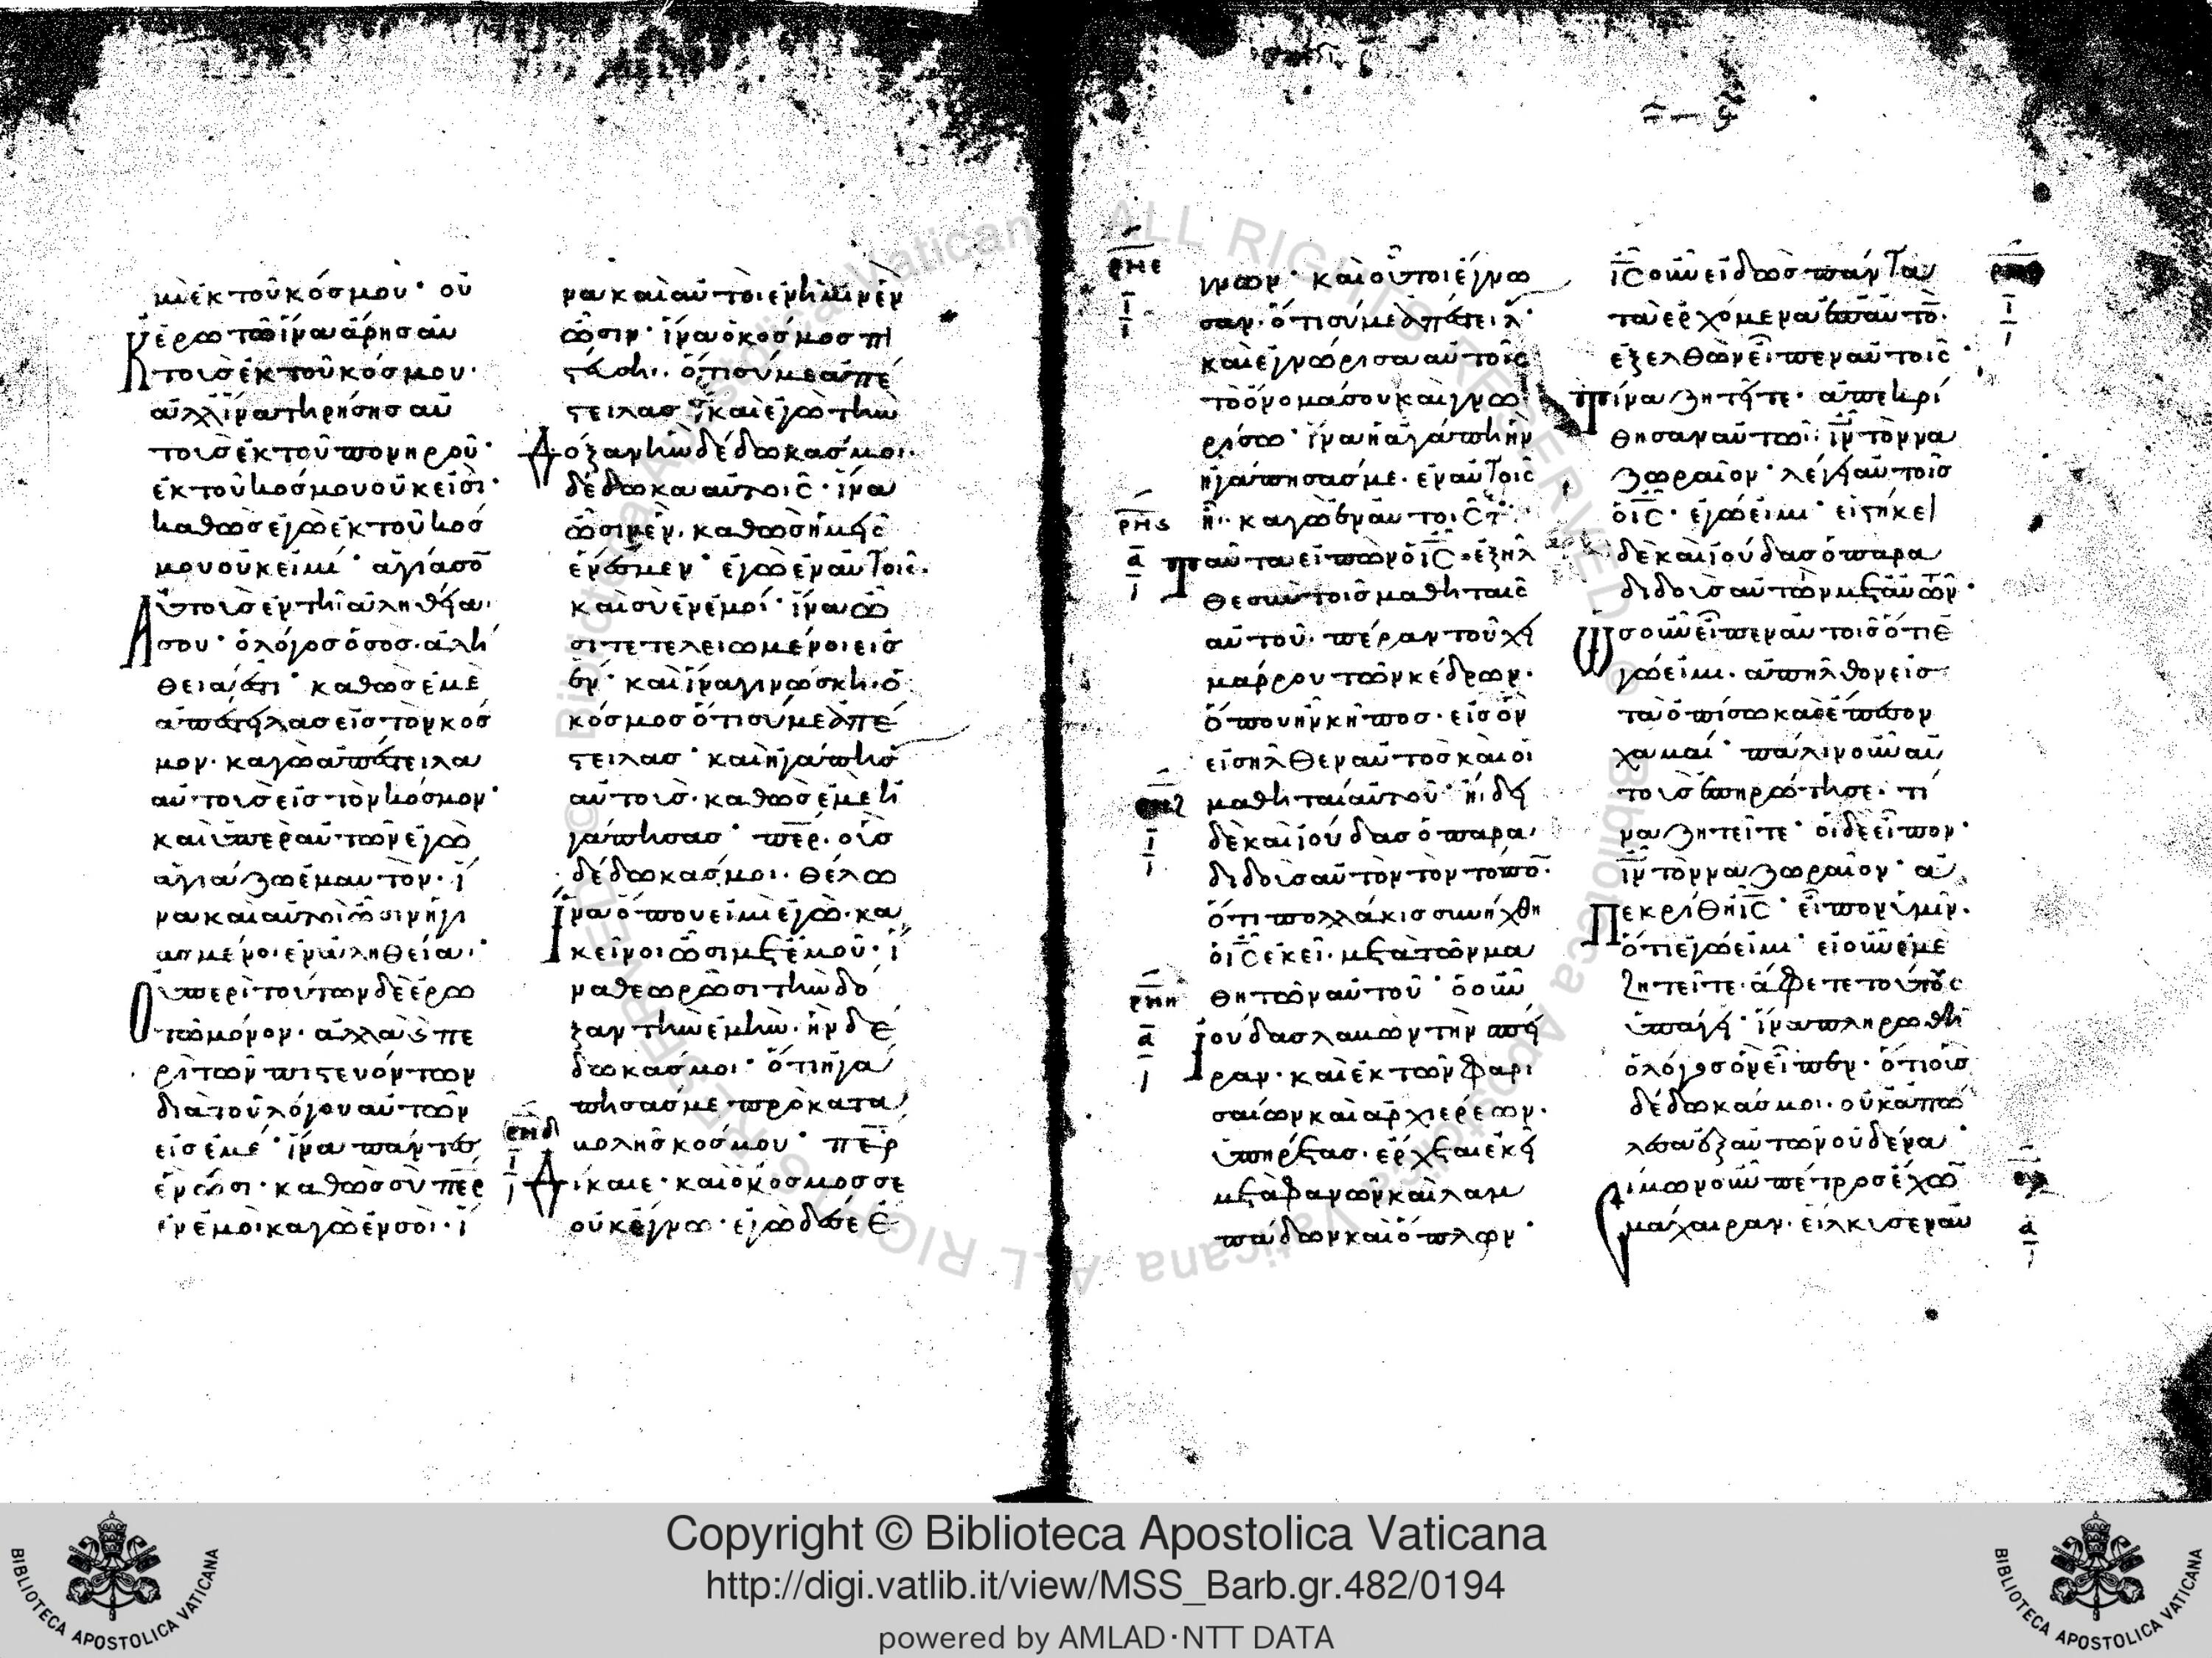 μὶ ἐκ τοῦ κόσμου· οὐ
κ ἐρωτῶ ἵνα ἄρησ αὐ
τοὺσ ἐκ τοῦ κόσμου·
ἀλλ' ἵνα τηρήσησ αὐ
τοὺσ ἐκ τοῦ πονηροῦ·
ἐκ τοῦ κόσμου οὐκ εἰσὶ·
καθὼσ ἐγὼ ἐκ τοῦ κόσ
μου οὐκ εἰμὶ· ἁγίασō
αὐτοὺσ ἐν τῆ ἀληθεία
σου· ὁ λόγοσ ὁ σοσ· ἀλή
θεια ἐστι· καθὼσ ἐμὲ
ἀπέστειλασ εἰσ τὸν κόσ
μον· καγὼ ἀπέστειλα
αὐτοὺσ εἰσ τὸν κόσμον·
καὶ ὑπὲρ αὐτῶν ἐγὼ
ἁγιάζω ἐμαυτόν· ἵ
να καὶ αὐτοὶ ὦσιν ἡγι
ασμένοι ἐν ἀληθεία·
Οὐ περὶ τούτων δὲ ἐρω
τῶ μόνον· ἀλλὰ ϗ πε
ρὶ τῶν πιστευόντων
διὰ τοῦ λόγου αὐτῶν
εἰσ ἐμέ· ἵνα πάντεσ
ἓν ὦσι· καθὼσ σὺ πε̅ρ
ἐν ἐμοὶ καγὼ ἐν σοὶ· ἵ
να καὶ αὐτοὶ ἐν ἡμῖν ἓν
ὦσιν· ἵνα ὁ κόσμοσ πι
στεύση· ὅτι σύ με ἀπέ
στειλασ· καὶ ἐγὼ τὴν
Δόξαν ἣν δέδωκασ μοι·
δέδωκα αὐτοῖσ· ἵνα
ὦσιν ἕν· καθὼσ ἡμεῖσ
ἕν ἐσμεν· ἐγὼ ἐν αὐτοῖσ·
καὶ σὺ ἐν ἐμοί· ἵνα ὦ
σι τετελειωμένοι εἰσ
ἕν· καὶ ἵνα γινώσκη ὁ
κόσμοσ ὅτι σύ με ἀπέ
στειλασ· καὶ ἠγάπησ
αὐτοὺσ· καθὼσ ἐμὲ ἠ
γάπησασ· πε̅ρ· οὓσ
δέδωκασ μοι· θέλω
ἵνα ὅπου εἰμὶ ἐγὼ· κα
κεῖνοι ὦσι μετ' ἐμοῦ· ἵ
να θεωρῶσι τὴν δό
ξαν τὴν ἐμὴν· ἣν δέ
δωκασ μοι· ὅτι ἠγά
πησασ με πρὸ κατα
ρμδ
ι
βολῆσ κόσμου· πε̅ρ
δίκαιε· καὶ ὁ κόσμοσ σε
οὐκ ἔγνω· ἐγὼ δέ σε ἔ
ρμε
ι
γνων· καὶ οὗτοι ἔγνω
σαν· ὅτι σύ με ἀπέστειλ·
καὶ ἐγνώρισα αὐτοῖσ
τὸ ὄνομά σου καὶ γνω
ρίσω· ἵνα ἡ ἀγάπη ἣν
ἠγάπησασ με· ἐν αὐτοῖσ
ρμς
α
ι
ἦ· καγὼ ἐν αὐτοῖσ τ
Ταῦτα εἰπὼν ὁ ι̅σ̅· ἐξῆλ
θε σὺν τοῖσ μαθηταῖσ
αὐτοῦ· πέραν τοῦ χει
μάρρου τῶν κέδρων·
ὅπου ἦν κῆποσ· εἰσ ὃν
εἰσῆλθεν αὐτὸσ καὶ οἱ
ρμζ
ι
μαθηταὶ αὐτοῦ· ἤδει
δὲ καὶ ἰούδασ ὁ παρα
διδοὺσ αὐτὸν τὸν τόπō·
ὅτι πολλάκισ συνήχθη
ὁ ι̅σ̅ ἐκεῖ· μετὰ τῶν μα
ρμη
α
ι
θητῶν αὐτοῦ· ὁ οὖν
ἰούδασ λαβὼν τὴν σπεῖ
ραν· καὶ ἐκ τῶν φαρι
σαίων καὶ ἀρχιερέων·
ὑπηρέτασ· ἔρχεται ἐκεῖ
μετὰ φανῶν καὶ λαμ
πάδων καὶ ὅπλων·
ι̅σ̅ οὖν εἰδὼσ πάντα
τὰ ἐρχόμενα ἐπ' αὐτō·
ἐξελθὼν εἶπεν αὐτοῖσ·
Τίνα ζητεῖτε· ἀπεκρί
θησαν αὐτῶ· ι̅ν̅ τὸν να
ζωραῖον· λέγει αὐτοῖσ
ὁ ι̅σ̅· ἐγὼ εἰμι· εἱστήκει
δὲ καὶ ἰούδασ ὁ παρα
διδοὺσ αὐτὸν μετ' αὐτῶν·
Ὡσ οὖν εἶπεν αὐτοῖσ ὅτι ἐ
γώ εἰμι· ἀπῆλθον εἰσ
τὰ ὀπίσω καὶ ἔπεσον
χαμαί· πάλιν οὖν αὐ
τοὺσ ἐπηρώτησε· τί
να ζητεῖτε· οἱ δὲ εἶπον·
ι̅ν̅ τὸν ναζωραῖον· ἀ
πεκρίθη ι̅σ̅· εἶπον ὑμῖν·
ὅτι ἐγώ εἰμι· εἰ οὖν ἐμὲ
ζητεῖτε· ἄφετε τούτουσ
ὑπάγειν· ἵνα πληρωθῆ
ὁ λόγοσ ὃν εἶπεν· ὅτι οὓσ
δέδωκασ μοι· οὐκ ἀπώ
λεσα ἐξ αὐτῶν οὐδένα·
Σίμων οὖν πέτροσ ἔχων
μάχαιραν· εἵλκυσεν αὐ
α
ι
Copyright © Biblioteca Apostolica Vaticana
http://digi.vatlib.it/view/MSS_Barb.gr.482/0194
powered by AMLAD·NTT DATA
BIBLIOTECA APOSTOLICA VATICANA
BIBLIOTECA APOSTOLICA VATICANA